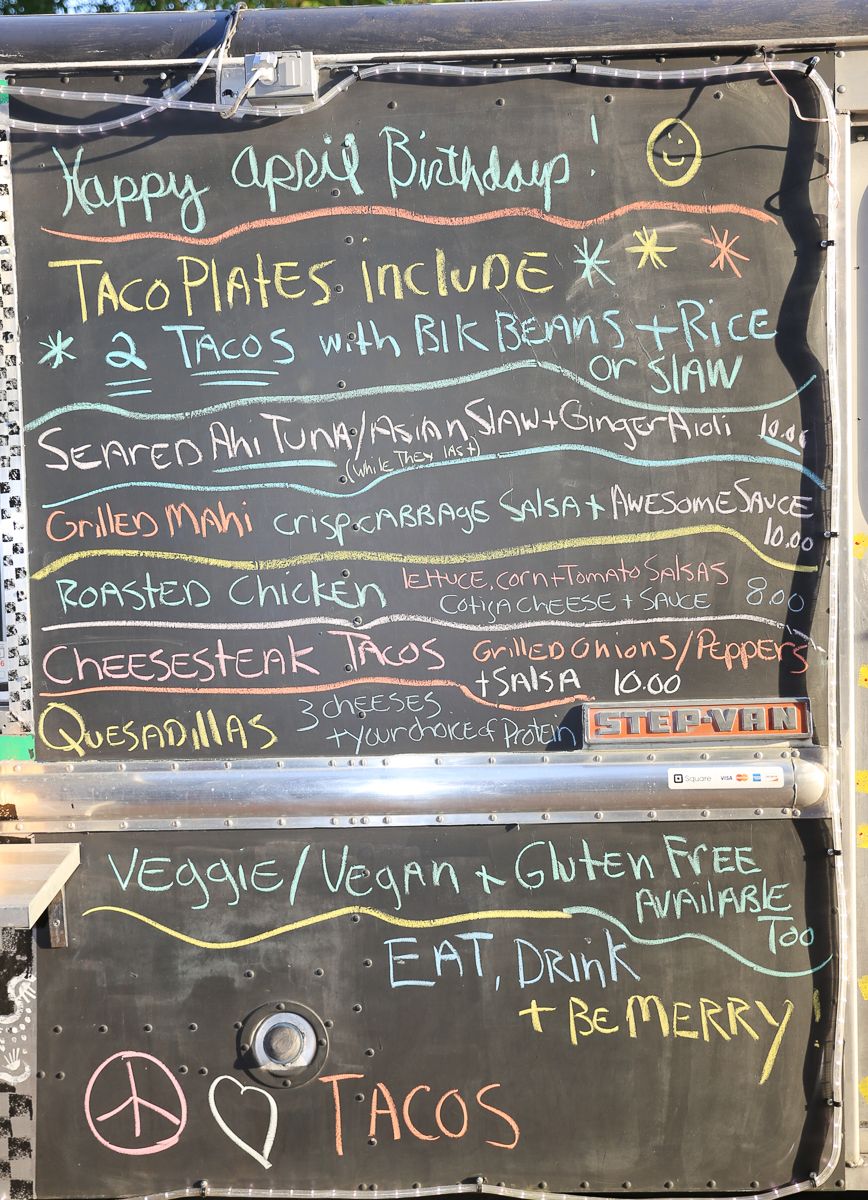 Happy April Birthdays!
TACO PLATES INCLUDE
* 2 TACOS with Blk BEANS + RiCE
or SLAW
SEARED Ahi TUNA/ASIAN SLAW + Ginger Aioli 10.00
(While They last)
Grilled MAhi crisp cABBAGE SALSA + AWESOME SAUCE
10.00
ROASTED Chicken lettuce, corn + Tomato SALSAS
Cotija CHEESE + SAUCE 8.00
CHEESESTEAK TACOS Grilled Onions/Peppers
+ SALSA 10.00
QUESADIllAS 3 cheeses
+ your choice of Protein
STEP-VAN
Square VISA
VEGGIE/VEGAN + Gluten FREE
AVAilABLE
Too
EAT, DRink
+ BE MERRY
TACOS